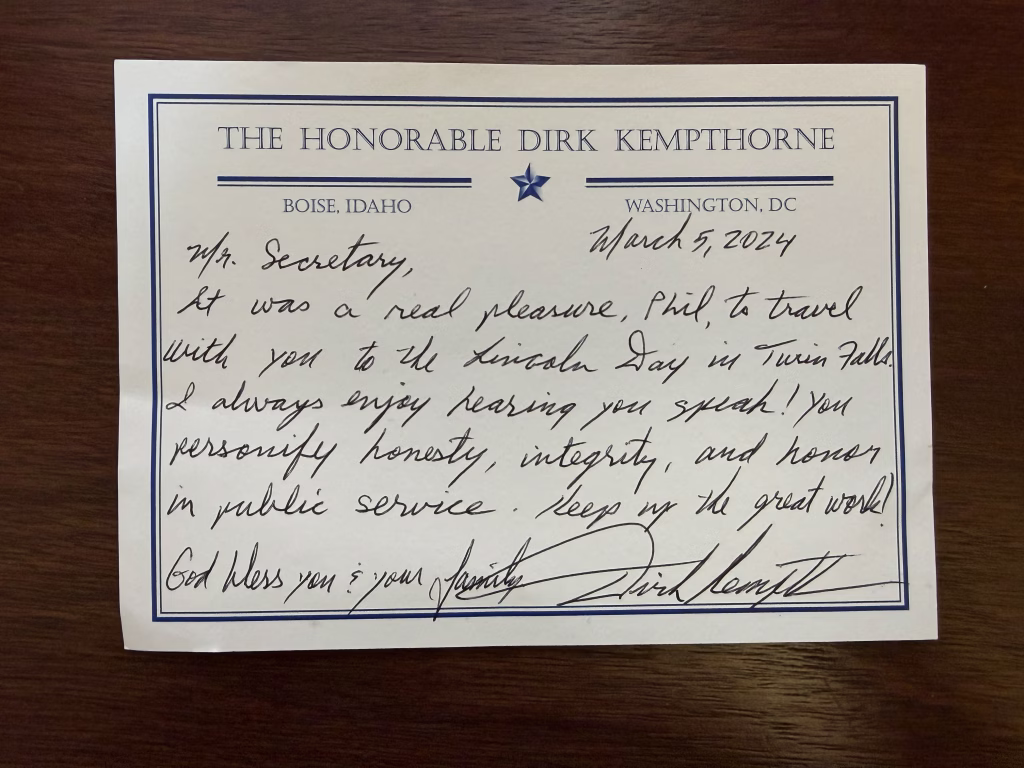 THE HONORABLE DIRK KEMPTHORNE
BOISE, IDAHO
WASHINGTON, DC
March 5, 2024
Mr. Secretary,
It was a real pleasure, Phil, to travel
with you to the Lincoln Day in Twin Falls.
I always enjoy hearing you speak! You
personify honesty, integrity, and honor
in public service. Keep up the great work!
God bless you & your family
Dirk Kempthorne